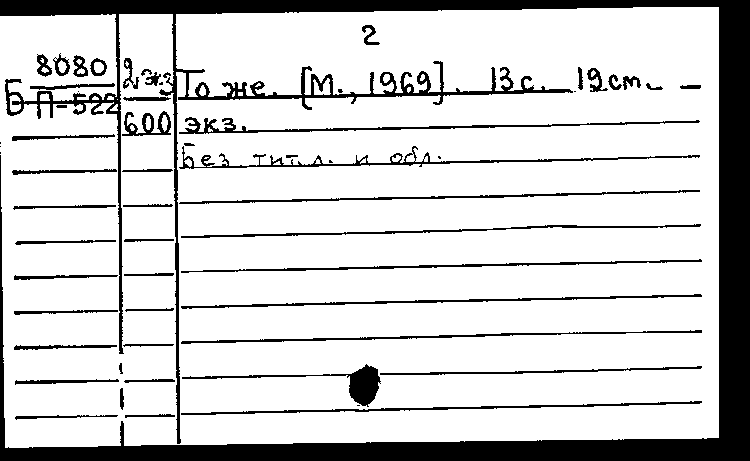 2
Б 8080 2 экз То же. [М., 1969]. 13 с. 19 см. —
П-522 600 экз.
Без тит. л. и обл.